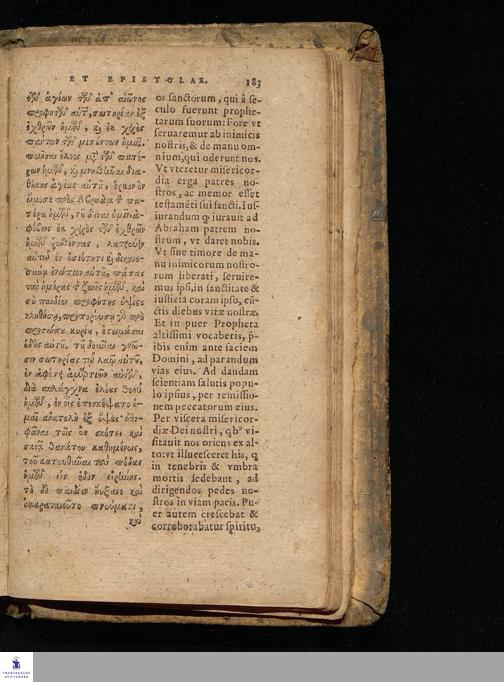 ET EPISTOLAE. 183
τῶν ἁγίων τῶν ἀπ' αἰῶνος
προφητῶν αὐτοῦ, σωτηρίαν ἐξ
ἐχθρῶν ἡμῶν, καὶ ἐκ χειρὸς
πάντων τῶν μισούντων ἡμᾶς.
ποιῆσαι ἔλεος μετὰ τῶν πατέ-
ρων ἡμῶν, καὶ μνησθῆναι δια-
θήκης ἁγίας αὐτοῦ, ὅρκον ὃν
ὤμοσε πρὸς Ἀβραὰμ τὸν πα-
τέρα ἡμῶν, τοῦ δοῦναι ἡμῖν ἀ-
φόβως ἐκ χειρὸς τῶν ἐχθρῶν
ἡμῶν ῥυσθέντας, λατρεύειν
αὐτῷ ἐν ὁσιότητι καὶ δικαιο-
σύνῃ ἐνώπιον αὐτοῦ, πάσας
τὰς ἡμέρας τῆς ζωῆς ἡμῶν. καὶ
σὺ παιδίον προφήτης ὑψίστου
κληθήσῃ, προπορεύσῃ γὰρ πρὸ
προσώπου κυρίου, ἑτοιμάσαι
ὁδοὺς αὐτοῦ. τοῦ δοῦναι γνῶ-
σιν σωτηρίας τῷ λαῷ αὐτοῦ,
ἐν ἀφέσει ἁμαρτιῶν αὐτῶν,
διὰ σπλάγχνα ἐλέους θεοῦ
ἡμῶν, ἐν οἷς ἐπεσκέψατο ἡ-
μᾶς ἀνατολὴ ἐξ ὕψους· ἐπι-
φᾶναι τοῖς ἐν σκότει καὶ
σκιᾷ θανάτου καθημένοις,
τοῦ κατευθῦναι τοὺς πόδας
ἡμῶν εἰς ὁδὸν εἰρήνης.
τὸ δὲ παιδίον ηὔξανε καὶ
ἐκραταιοῦτο πνεύματι,
καὶ
os sanctorum, qui à se-
culo fuerunt prophe-
tarum suorum: Fore vt
seruaremur ab inimicis
nostris, & de manu om-
nium, qui oderunt nos.
Vt vteretur misericor-
dia erga patres no-
stros, ac memor esset
testamẽti sui sancti. Ius-
iurandum qͥ iurauit ad
Abraham patrem no-
strum, vt daret nobis.
Vt sine timore de ma-
nu inimicorum nostro-
rum liberati, seruire-
mus ipsi, in sanctitate &
iusticia coram ipso, cũ-
ctis diebus vitæ nostræ.
Et tu puer Propheta
altissimi vocaberis, p̃-
ibis enim ante faciem
Domini, ad parandum
vias eius. Ad dandam
scientiam salutis popu-
lo ipsius, per remissio-
nem peccatorum eius.
Per viscera misericor-
diæ Dei nostri, qbꝰ vi-
sitauit nos oriens ex al-
to: vt illucesceret his, q
in tenebris & vmbra
mortis sedebant, ad
dirigendos pedes no-
stros in viam pacis. Pu-
er autem crescebat &
corroborabatur spiritu,
FRANCKESCHE
STIFTUNGEN